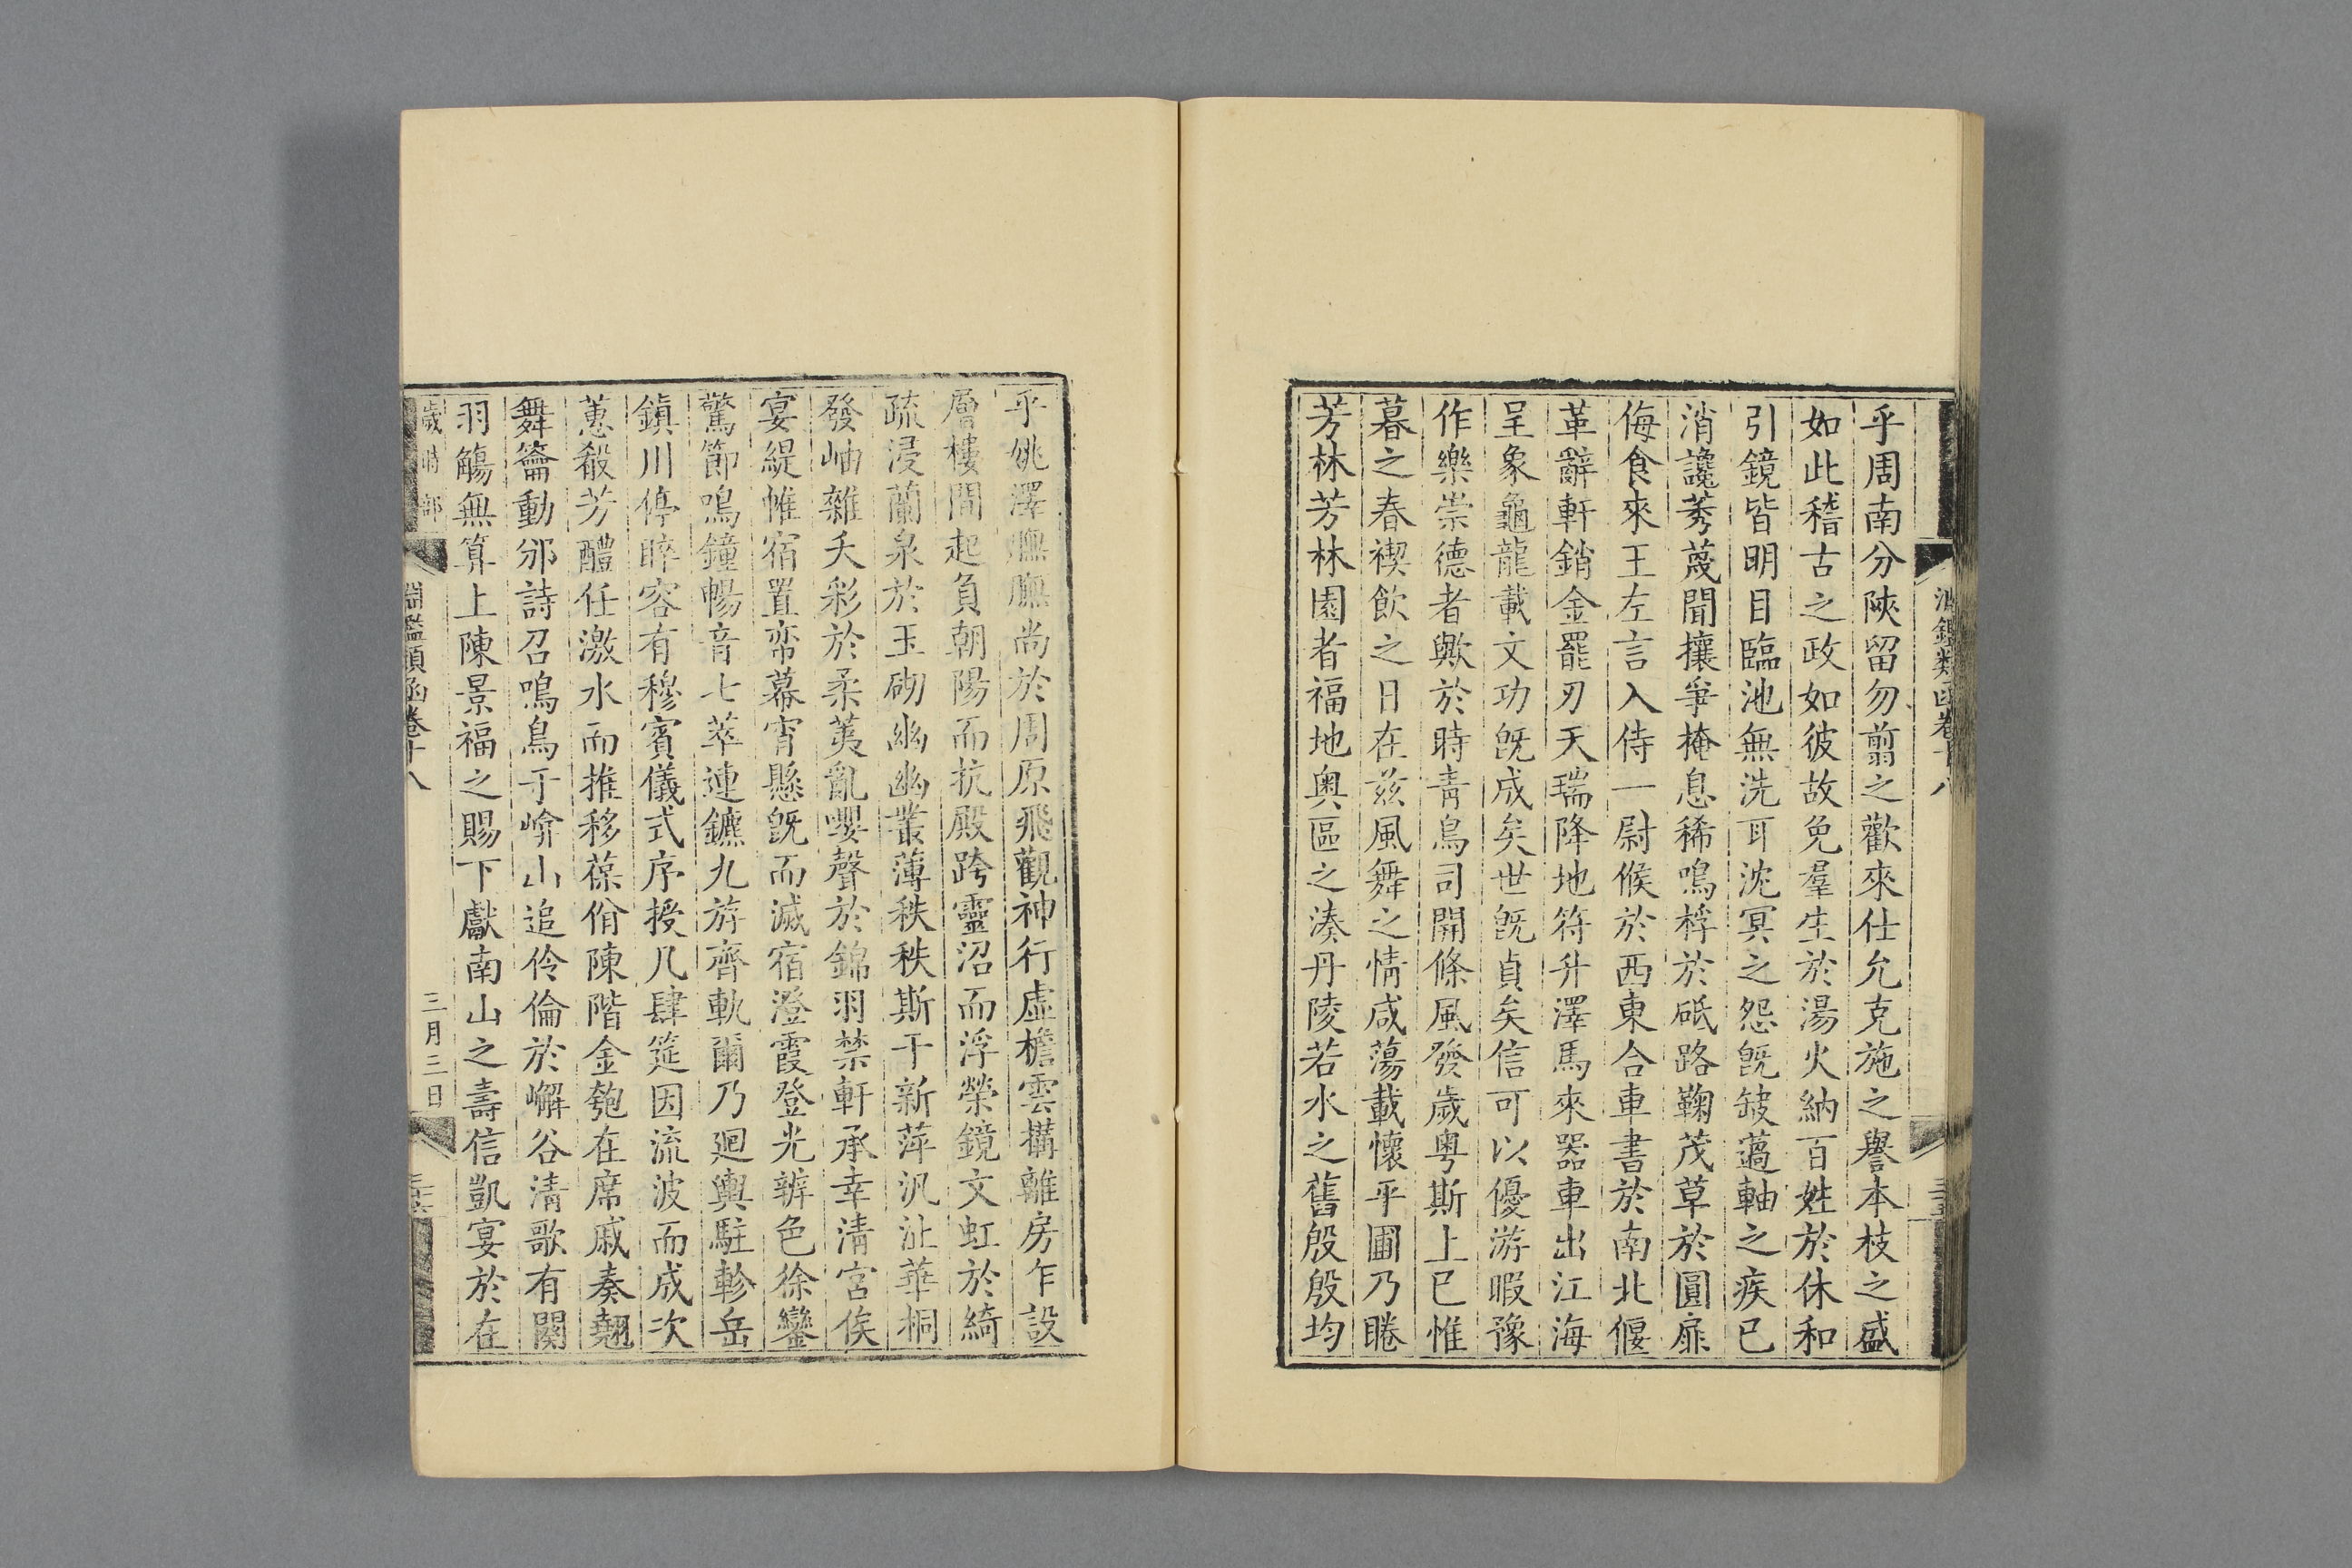 淵鑑類函卷十八
乎周南分陝留勿翦之歡來仕允克施之譽本枝之盛
如此稽古之政如彼故免羣生於湯火納百姓於休和
引鏡皆明目臨池無洗耳沈冥之怨旣缺薖軸之疾已
消讒莠蔑聞攘爭掩息稀鳴桴於砥路鞠茂草於圓扉
侮食來王左言入侍一尉候於西東合車書於南北偃
革辭軒銷金罷刃天瑞降地符升澤馬來器車出江海
呈象龜龍載文功旣成矣世旣貞矣信可以優游暇豫
作樂崇德者歟於時青鳥司開條風發歲粵斯上巳惟
暮之春禊飲之日在茲風舞之情咸蕩載懷平圃乃睠
芳林芳林園者福地奧區之湊丹陵若水之舊殷殷均
乎姚澤膴膴尚於周原飛觀神行虛檐雲構離房乍設
層樓間起負朝陽而抗殿跨靈沼而浮榮鏡文虹於綺
疏浸蘭泉於玉砌幽幽叢薄秩秩斯干新萍汎沚華桐
發岫雜夭彩於柔荑亂嚶聲於錦羽禁軒承幸清宮俟
宴緹帷宿置帟幕宵懸旣而滅宿澄霞登光辨色徐鑾
驚節鳴鐘暢音七萃連鑣九斿齊軌爾乃迴輿駐軫岳
鎮川停睟容有穆賓儀式序授几肆筵因流波而成次
蕙殽芳醴任激水而推移葆佾陳階金匏在席戚奏翹
舞籥動邠詩召鳴鳥于崳山追伶倫於嶰谷清歌有闋
羽觴無算上陳景福之賜下獻南山之壽信凱宴於在
歲時部 淵鑑類函卷十八 三月三日